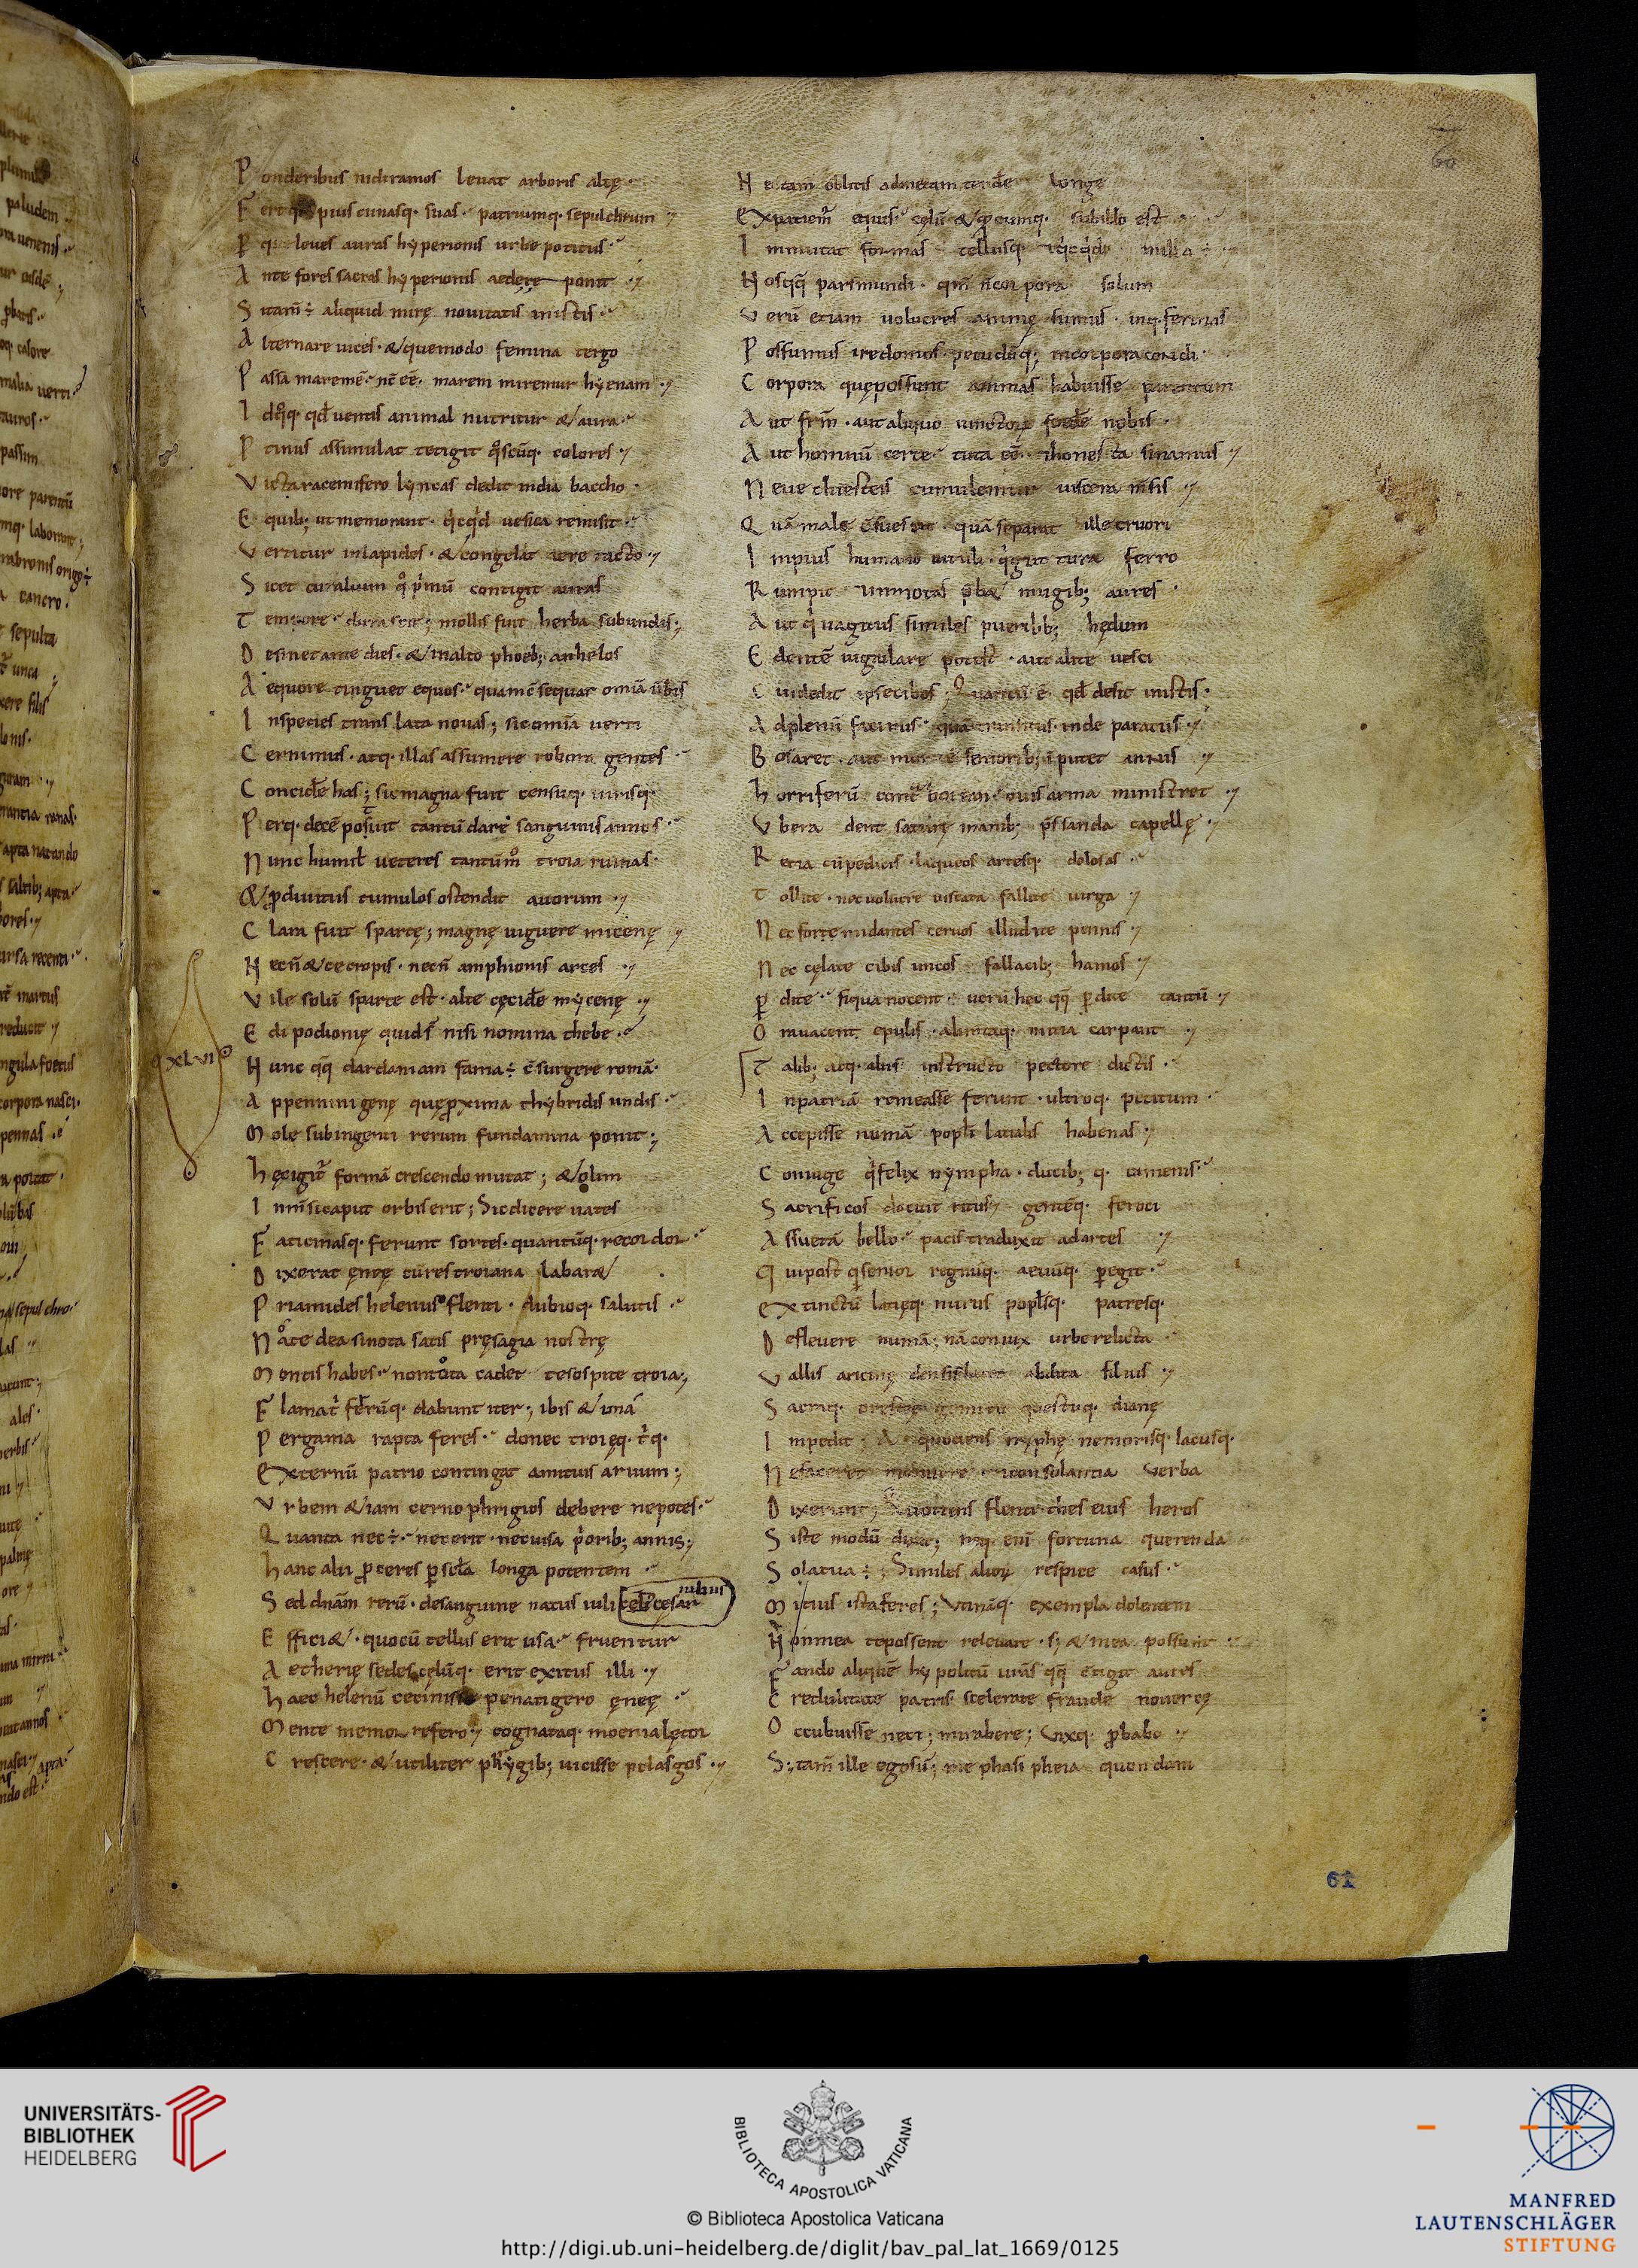 Ponderibus nidi ramos leuat arboris altę
Fertq· pius cunasq· suas· patriumq· sepulchrum
P̄q· leues auras hyperionis urbe potitus
Ante fores sacras hyperionis aedere ponit
Si tam̄ ÷ aliquid mirę nouitatis in istis
Alternare uices· & quemodo femina tergo
Passa marem ē· nc̄ eē· marem miremur hyenam
Id qq̊· qđ uentis animal nutritur & aura
Ptinus assimulat tetigit qˢcūq· colores
Victa racemifero lyncas dedit india baccho
E quib; ut memorant· qͥcqͥd uesica remisit
Vertitur in lapides· & congelat aere tacto
Sic et curalium qͦ pͥmū contigit auras
Tempore durescit; mollis fuit herba sub undis;
Desinet ante dies· & in alto phoeb; anhelos
Aequore tinguet equos· quam c̄sequar omīa ūbis
In species translata nouas; sic omīa uerti
Cernimus· atq· illas assumere robora gentes
Concidēe has; sic magna fuit censuq· uirisq·
Perq· decē potuit tantū dare sanguinis annos
Nunc humil ueteres tantūmͦ troia ruinas
& p̄ diuitiis tumulos ostendit auorum
Clara fuit spartę; magnę uiguere micenę
Necn̄ & cecropis· necn̄ amphionis arces
Vile solū sparte est· altę cęcidēe mycenę
Edipodionię quid sͭ nisi nomina thebe
XLVI
Nunc qq̄ dardaniam fama ÷ c̄surgere romā
Appenninigenę quę p̄xima thybridis undis
Mole sub ingenti rerum fundamina ponit;
hęc igit̄ formā crescendo mutat; & olim
Inm̄si caput orbis erit; Sic dicere uates
Faticinasq· ferunt sortes· quantūq· recordor
Dixerat ęneę cū res troiana labar&
Priamides helenus flenti· dubioq· salutis
Nāte dea si nota satis pręsagia nostrę
Mentis habes· non tōta cadet te sospite troia;
Flamāt ferrūq· dabunt iter; ibis & unā
Pergama rapta feres· donec troięq· tͥq·
Externū patrio contingat amicius aruum;
Vrbem & iam cerno phrigios debere nepotes
Quanta nec ÷· nec erit· nec uisa pͥorib; annis;
hanc alii p̄ceres p̄ scła longa potentem
Sed dnām rerū· de sanguine natus iuli
Efficiet· quo cū tellus erit usa· fruentur
Aetherię sedes cęlūq· erit exitus illi
haec helenū cecinisse penatigero ęneę
Mente memor refero cognataq· moenia lętor
Crescere· & utiliter phrygib; uicisse pelasgos
60
Ne tam̄ oblitis ad metam tendēe longe
Expatiem̄ equis· cęlū & q̄cumq· sub illo est
Inmutat formas tellusq· & qͥcqͥd in illa ÷
Nos qq̄ pars mundi· qm̄ n̄ corpora solum
Verū etiam uolucres animę sumus· inq· ferinas
Possumus ire domos· pecudūq; in corpora condi
Corpora quę possunt animas habuisse parentum
Aut frm̄· aut aliquo iunctorꝝ foedēe nobis
Aut hominū certe· tuta eē· & honesta sinamus
Neue thiesteis cumulemur uiscera m̄sis
Quā male c̄suescit· quā se parat ille cruori
Impius humano uituli· qͥ guttura ferro
Rumpit & inmotas p̄b& mugitib; aures
Aut qͥ uagitus similes puerilib; hędum
Edentē iugulare potest· aut alite uesci
Cui dedit ipse cibos; Quantū ē· qđ desit in istis
Ad plenū facinus· quā transitus inde paratus
Bos aret· aut mortē seniorib; īputet annis
horriferū contͣ borean· ouis arma ministret
Vbera dent saturę manib; p̄ssanda capellę
Retia cū pedicis· laqueos artesq· dolosas
Tollite· nec uolucrē uiscata fallite uirga
Nec formidantes ceruos illudite pennis
Nec cęlate cibis uncos fallacib; hamos
P̄dite· siqua nocent· uerū hec qq̄ p̄dite tantū
Ora uacent epulis· alimtaq· mitia carpant
Talib; atq· aliis instructo pectore dictis
In patriā remeasse ferunt· ultroq· petitum
Accepisse numā popli latialis habenas
Coniuge qͥ felix nympha· ducib; q· camenis
Sacrificos docuit ritus gentēq· feroci
Assuetā bello· pacis traduxit ad artes
Qui postq̄ senior regnūq· aeuūq· p̄egit
Extinctū latięq· nurus poplsq· patresq·
Defleuere numā; nā coniux urbe relicta
Vallis aricinę densis latet abdita siluis
Sacraq· oresteę gemitu questuq· dianę
Impedit· A quotiens nyphę nemorisq· lacusq·
Ne faceret monuere & consolantia uerba
Dixerunt; Quotiens flenti theseius heros
Siste modū dixit; neq· enī fortuna querenda
Sola tua ÷; Similes aliorꝝ respice casus
Mitius ista feres; Vtināq· exempla dolentem
N̄ mea te possent releuare· s; & mea possunt
Fando aliquē hypolitū ur̄as qq̄ c̄tigit aures
Credulitate patris· sceleratę fraude nouercę
Occubuisse neci; mirabere; Vixq· p̄babo
S; tam̄ ille ego sū; me phasipheia quondam
61
UNIVERSITÄTS-
BIBLIOTHEK
HEIDELBERG
BIBLIOTECA APOSTOLICA VATICANA
© Biblioteca Apostolica Vaticana
http://digi.ub.uni-heidelberg.de/diglit/bav_pal_lat_1669/0125
MANFRED
LAUTENSCHLÄGER
STIFTUNG